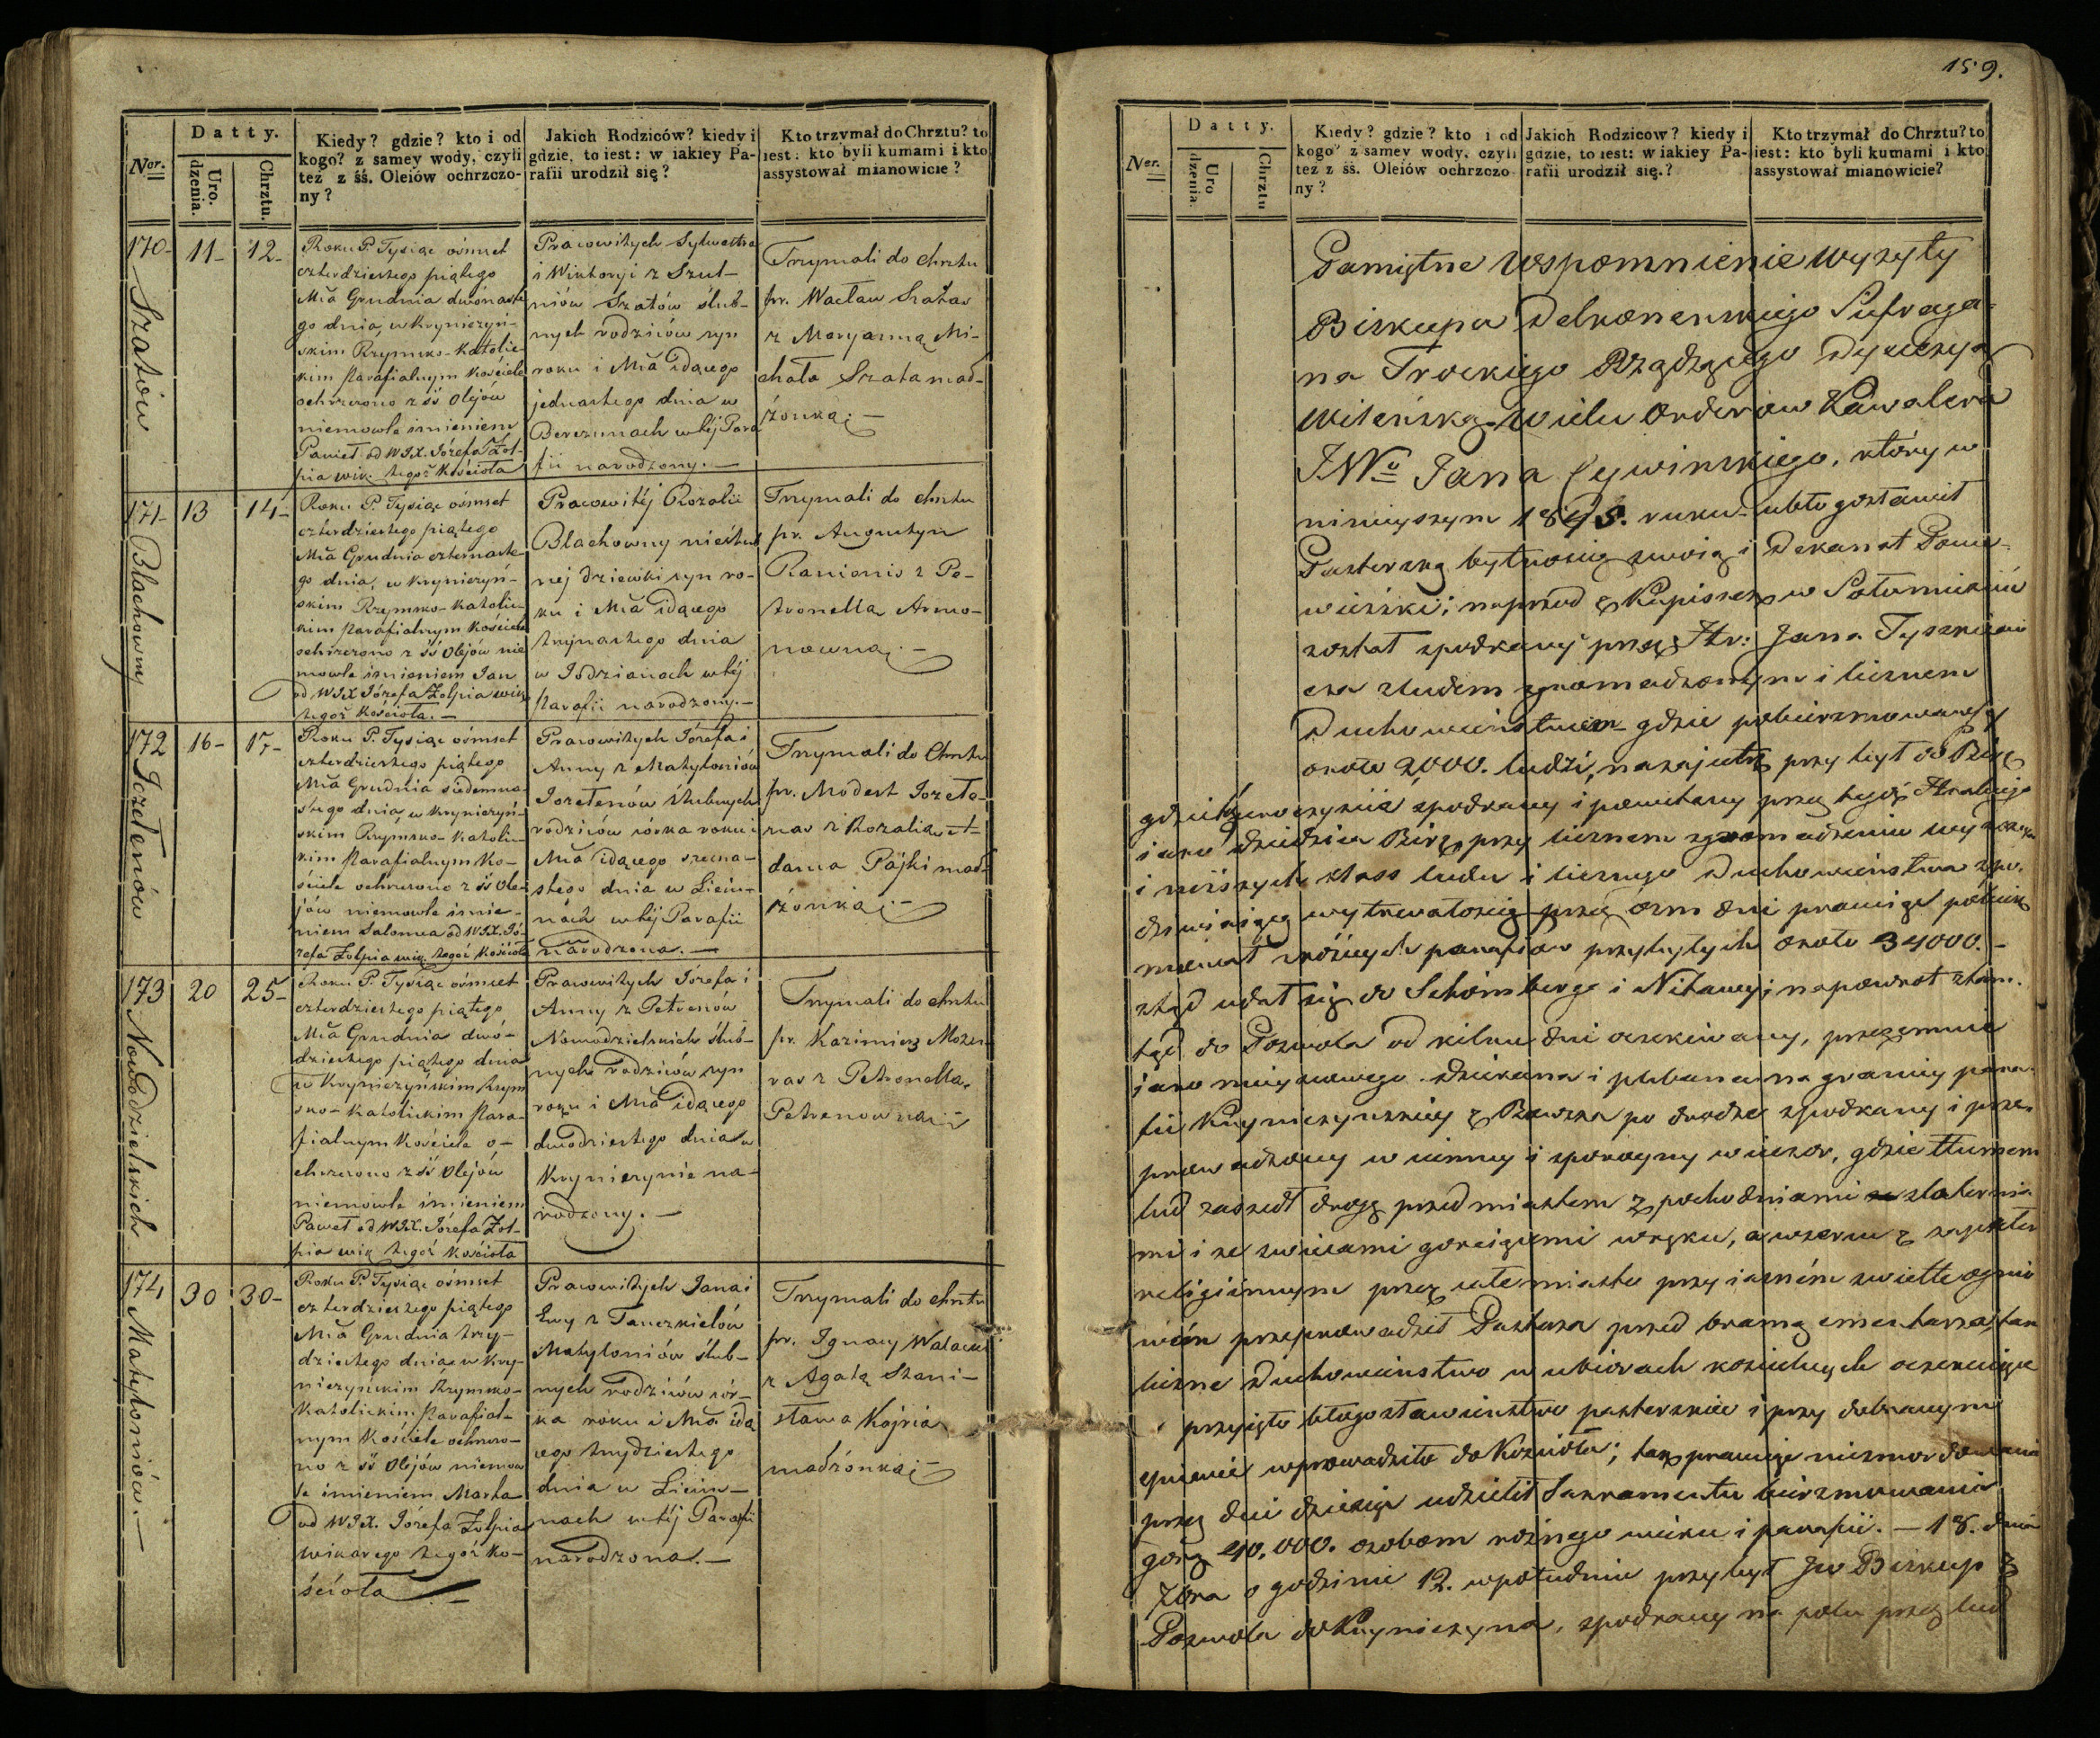 159.
Datty.
Ner.
Uro.
dzenia.
Chrztu.
Kiedy? gdzie? kto i od
kogo? z samey wody, czyli
też z śś. Oleiów ochrzczo-
ny?
Jakich Rodziców? kiedy i
gdzie, to iest: w iakiey Pa-
rafii urodził się?
Kto trzymał do Chrztu? to
iest: kto byli kumami i kto
assystował mianowicie?
170-
Szatów
11-
12-
Roku P. Tysiąc ośmset
czterdziestego piątego
Mca Grudnia dwónaste
go dnia, w Kryniczyń-
skim Rzymsko-Katolic-
kim Parafialnym Kościele
ochrzczono z śś Olejów
niemowle imieniem
Paweł od WJX. Józefa Żoł-
pia wik. tegoż Kościoła
Pracowitych Sylwestra
i Wiktoryi z Szut-
niów Szatów ślub-
nych rodziców syn
roku i Mca idącego
jednastego dnia w
Berczunach w téj Para
fii narodzony.—
Trzymali do chrztu
pr. Wacław Szatas
z Maryanną Mi-
chała Szata mał-
żonką;—
171-
Blachowny
13
14-
Roku P. Tysiąc ośmset
czterdziestego piątego
Mca Grudnia czternaste-
go dnia, w Krynczyń-
skim Rzymsko-Katolic-
kim Parafialnym Kościele
ochrzczono z śś Olejów nie
mowle imieniem Jan
od WJX Józefa Żołpia wik.
tegoż Kościoła.—
Pracowitéj Rozalii
Blachowny nieślub
nej dziewki syn ro-
ku i Mca idącego
trzynastego dnia
w Jodzianach w téj
Parafii narodzony.—
Trzymali do chrztu
pr. Augustyn
Ranionis z Pe-
tronella Armo-
nowną;—
172
Jozełenów
16-
17-
Roku P. Tysiąc ośmset
czterdziestego piątego
Mca Grudnia siedemna-
stego dnia, w Kryniczyń-
skim Rzymsko-Katolic-
kim Parafialnym Ko-
ściele ochrzczono z śś Ole-
jów niemowle imie-
niem Salomea od WJX. Jó-
zefa Żołpia wik. tegoż Kościoła
Pracowitych Józefa i
Anny z Matyloniów
Jozełenów ślubnych
rodziców córka roku i
Mca idącego szesna-
stego dnia w Liciu-
nach w téj Parafii
narodzona.—
Trzymali do Chrztu
pr. Modest Jozełe-
nas z Rozalią
dama Pajki mał-
żonką;—
173
Nowodzielskich
20
25-
Roku P. Tysiąc ośmset
czterdziestego piątego
Mca Grudnia dwó-
dziestego piątego dnia
w Kryniczyńskim Rzym
sko-Katolickim Para-
fialnym Kościele o-
chrzczono z śś Olejów
niemowle imieniem
Paweł od WJX. Józefa Żoł-
pia wik. tegoż Kościoła
Pracowitych Józefa i
Anny z Petrenów
Nowodzielskich ślub-
nych rodziców syn
roku i Mca idącego
dwudziestego dnia w
Krynczynie na-
rodzony.—
Trzymali do chrztu
pr. Kazimierz Mozu
ras z Petronella,
Petrenowną;—
174
Matyloniów.—
30
30-
Roku P. Tysiąc ośmset
czterdziestego piątego
Mca Grudnia trzy-
dziestego dnia w Kry-
niczyńskim Rzymsko-
Katolickim Parafial-
nym Kościele ochrzczo-
no z śś Olejów niemow
le imieniem Marta
od WJX. Józefa Żołpia
wikarego tegoż Ko-
ścioła
Pracowitych Jana i
Ewy z Tauczkielów
Matyloniów ślub-
nych rodziców cór-
ka roku i Mca ida
cego trzydziestego
dnia w Liciu-
nach w téj Parafii
narodzona.—
Trzymali do chrztu
pr. Ignacy
z Agatą Stani-
sława Kojria
małżonką;—
Datty.
Ner.
Uro
dzenia.
Chrztu
Kiedy? gdzie? kto i od
kogo? z samey wody, czyli
też z śś. Oleiów ochrzczo
ny?
Jakich Rodzicow? kiedy i
gdzie, to iest: w iakiey Pa-
rafii urodził się.?
Kto trzymał do Chrztu? to
iest: kto byli kumami i kto
assystował mianowicie?
Pamiętne Wspomnienie Wyzyty
Biskupa Delkonenskiego Sufraga-
na Trockiego Rządzącego Dyecezyą
Wileńską. Wielu Orderow Kawalera
JWo Jana Cywinskiego, który w
ninieyszym 1845. ruku ubłogosławił
Pasterską bytnością swoią i Dekanat Ponie-
wieżski; naprzud z Kupiszek w Sołomieście
został spodkany przez Hr: Jana Tyszkiewi
cza zludem zgromadzonym i licznem
Duchowieństwem gdzie pobierzmowawszy
około 2000. ludzi, nazajutrz przybył do Birż
gdzie uroczyście spodkany i powitany przez tegoż Hrabiego
iako dziedzica Birż, przy licznem zgromadzeniu wyższych
i niższych klass ludu i licznego Duchowieństwa zpo.
dziwiaiącą wytrwałością przez osm dni pracuiąc pobierz
mował z różnych parafiow przybyłych około 34000.—
ztąd udał się do Schömberga i Nitawy; napowrot ztam.
tąd do Poswola od kilku dni oczekiwany, przezemnie
jako mieyscowego Dziekana i plebana na granicy para-
fii Krynczynskiey z Rawska po drodze spodkany i prze-
prowadzony w ciemny i spokoyny wieczor, gdzie tłumem
lud zaszedł drogę przed miastem z pochodniami z laterni-
mi i ze swiecami goreiącemi w ręku, a wszeru z zapałem
religiinym przez całe miasto przy iasném swietle ogni
przeprowadził Pasterza przed bramę cmentarza, tam
liczne Duchowieństwo w ubiorach kościelnych oczekuiące
przyięło błogosławieństwo pasterskie i przy dobranym
spiewie wprowadziło do Kościoła; tam pracuiąc niezmordowanie
przez dni dziesięć udzielił Sakramentu bierzmowania
40.000. osobom różnego wieku i parafii.— 18. dnia
o godzinie 12. w południu przybył Jw Biskup z
Poswola do Krynczyna, spodkany na polu przez lud